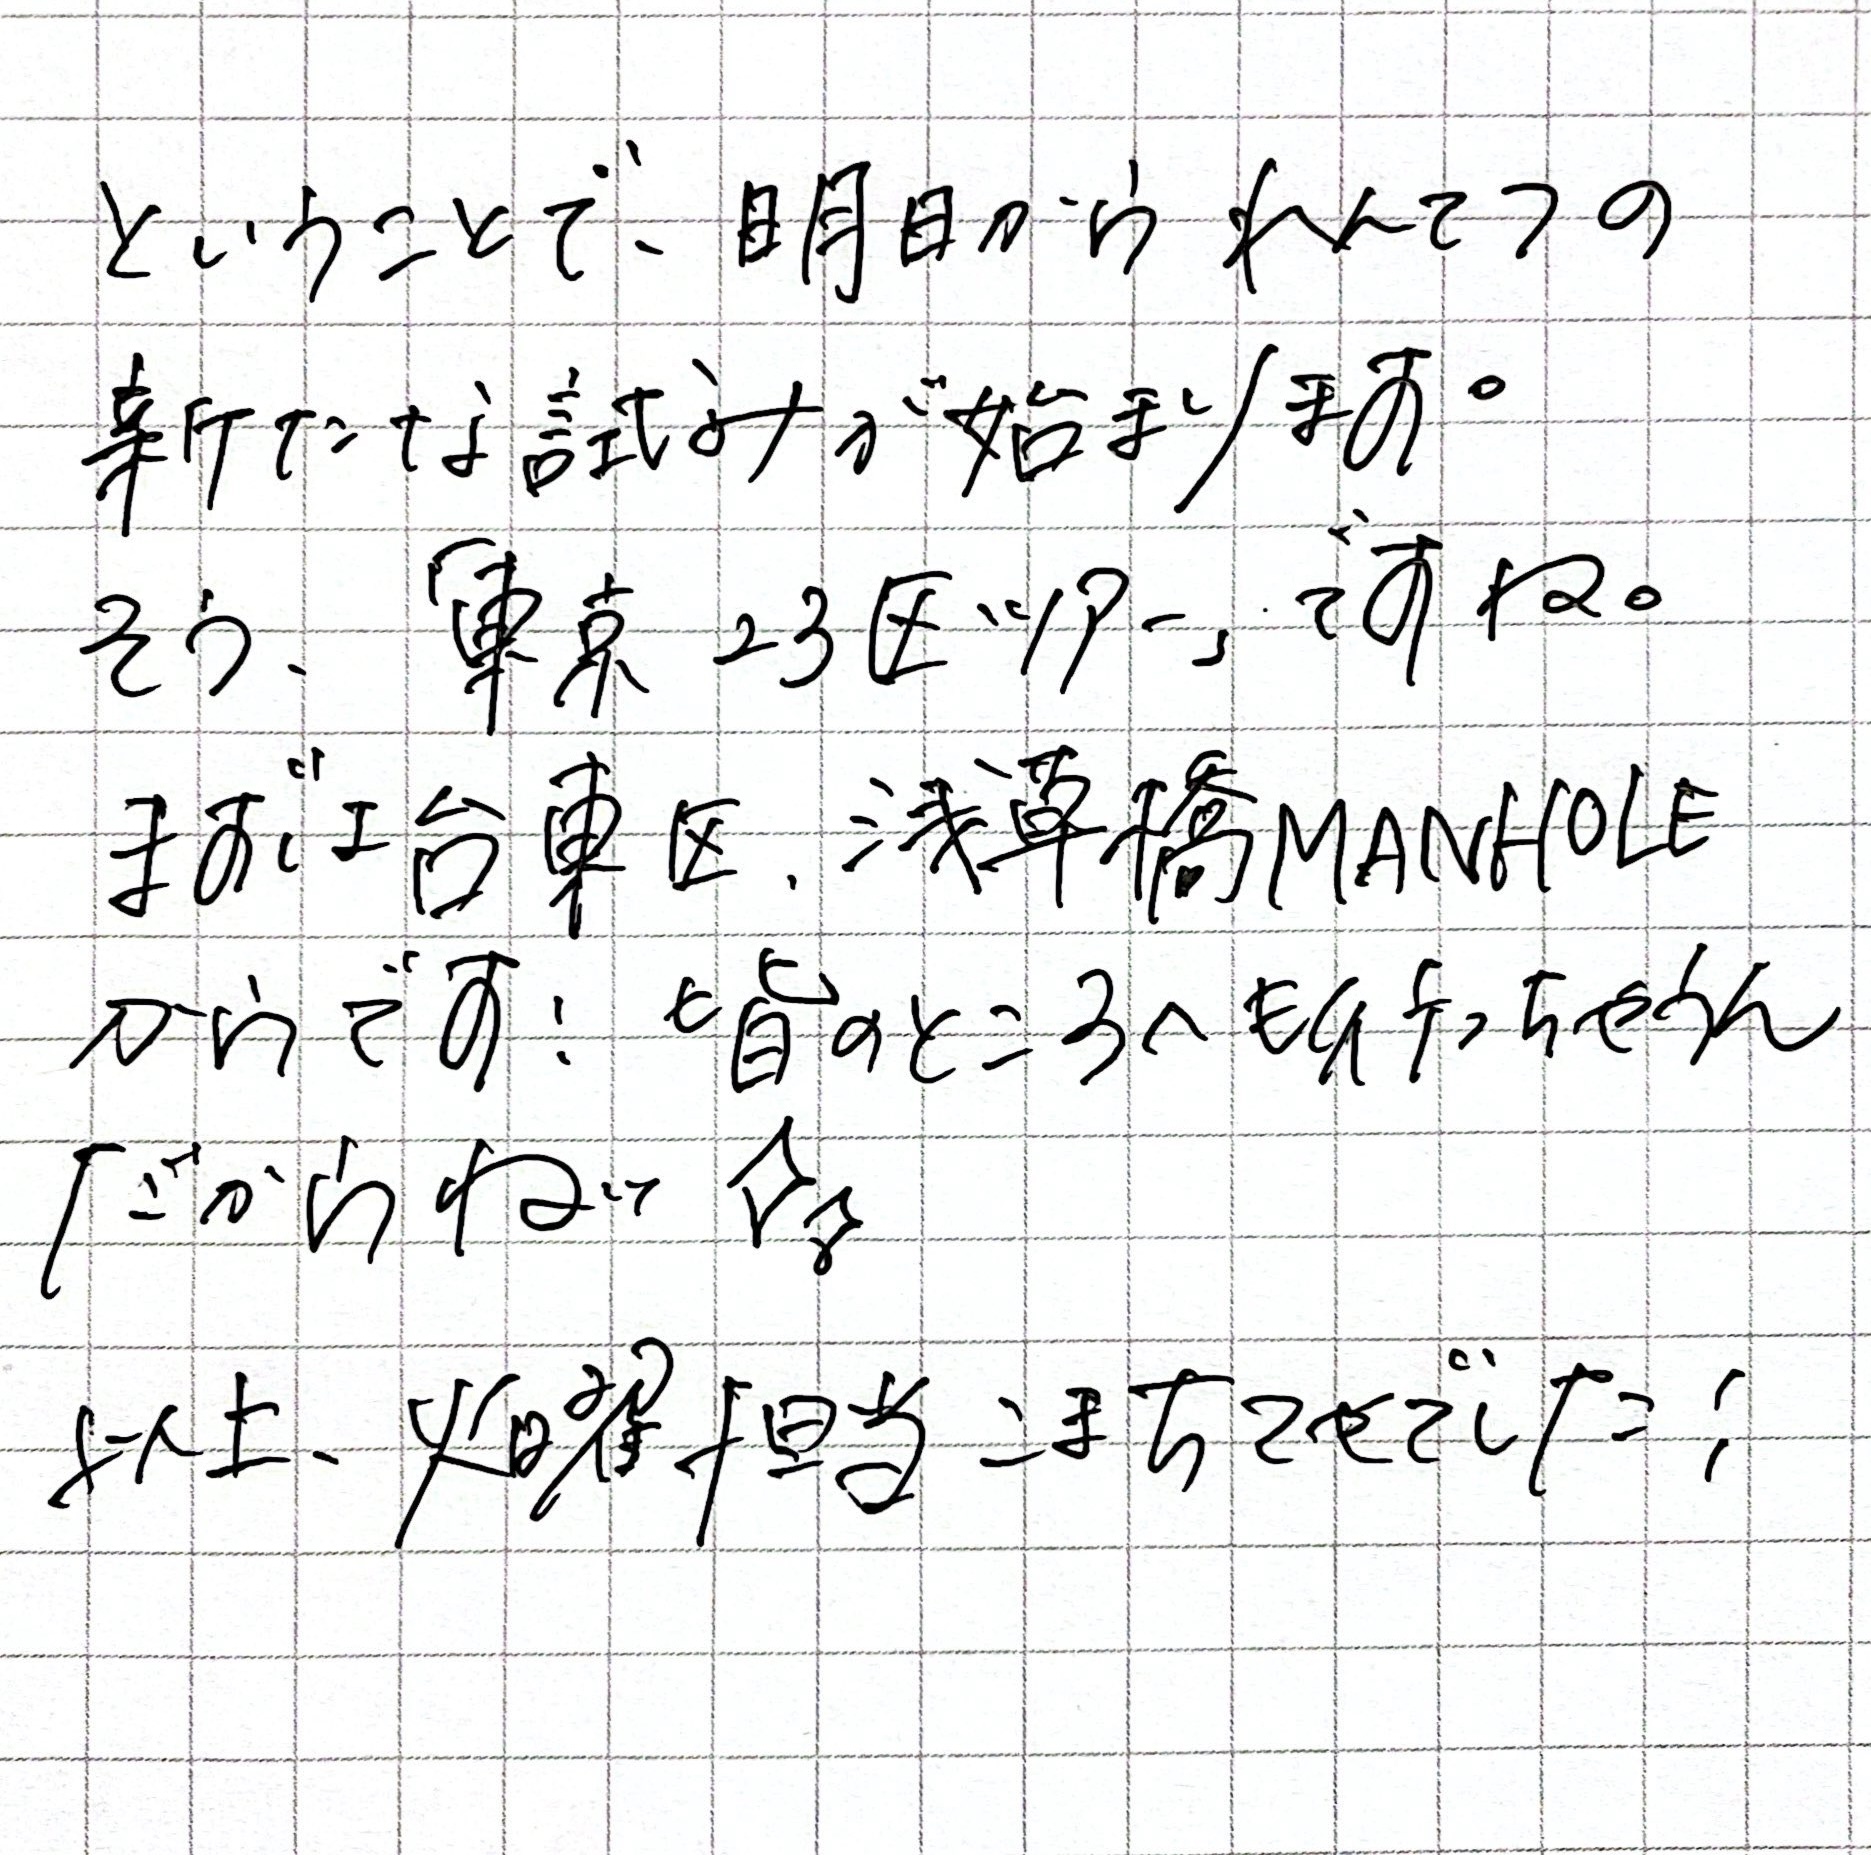 ということで、明日かられんてつの
新たな試みが始まります。
そう、「東京23区ツアー」ですね。
まずは台東区、浅草橋MANHOLE
からです！皆のところへも行っちゃうん
だからねっ
以上、火曜担当こまちてせでした！